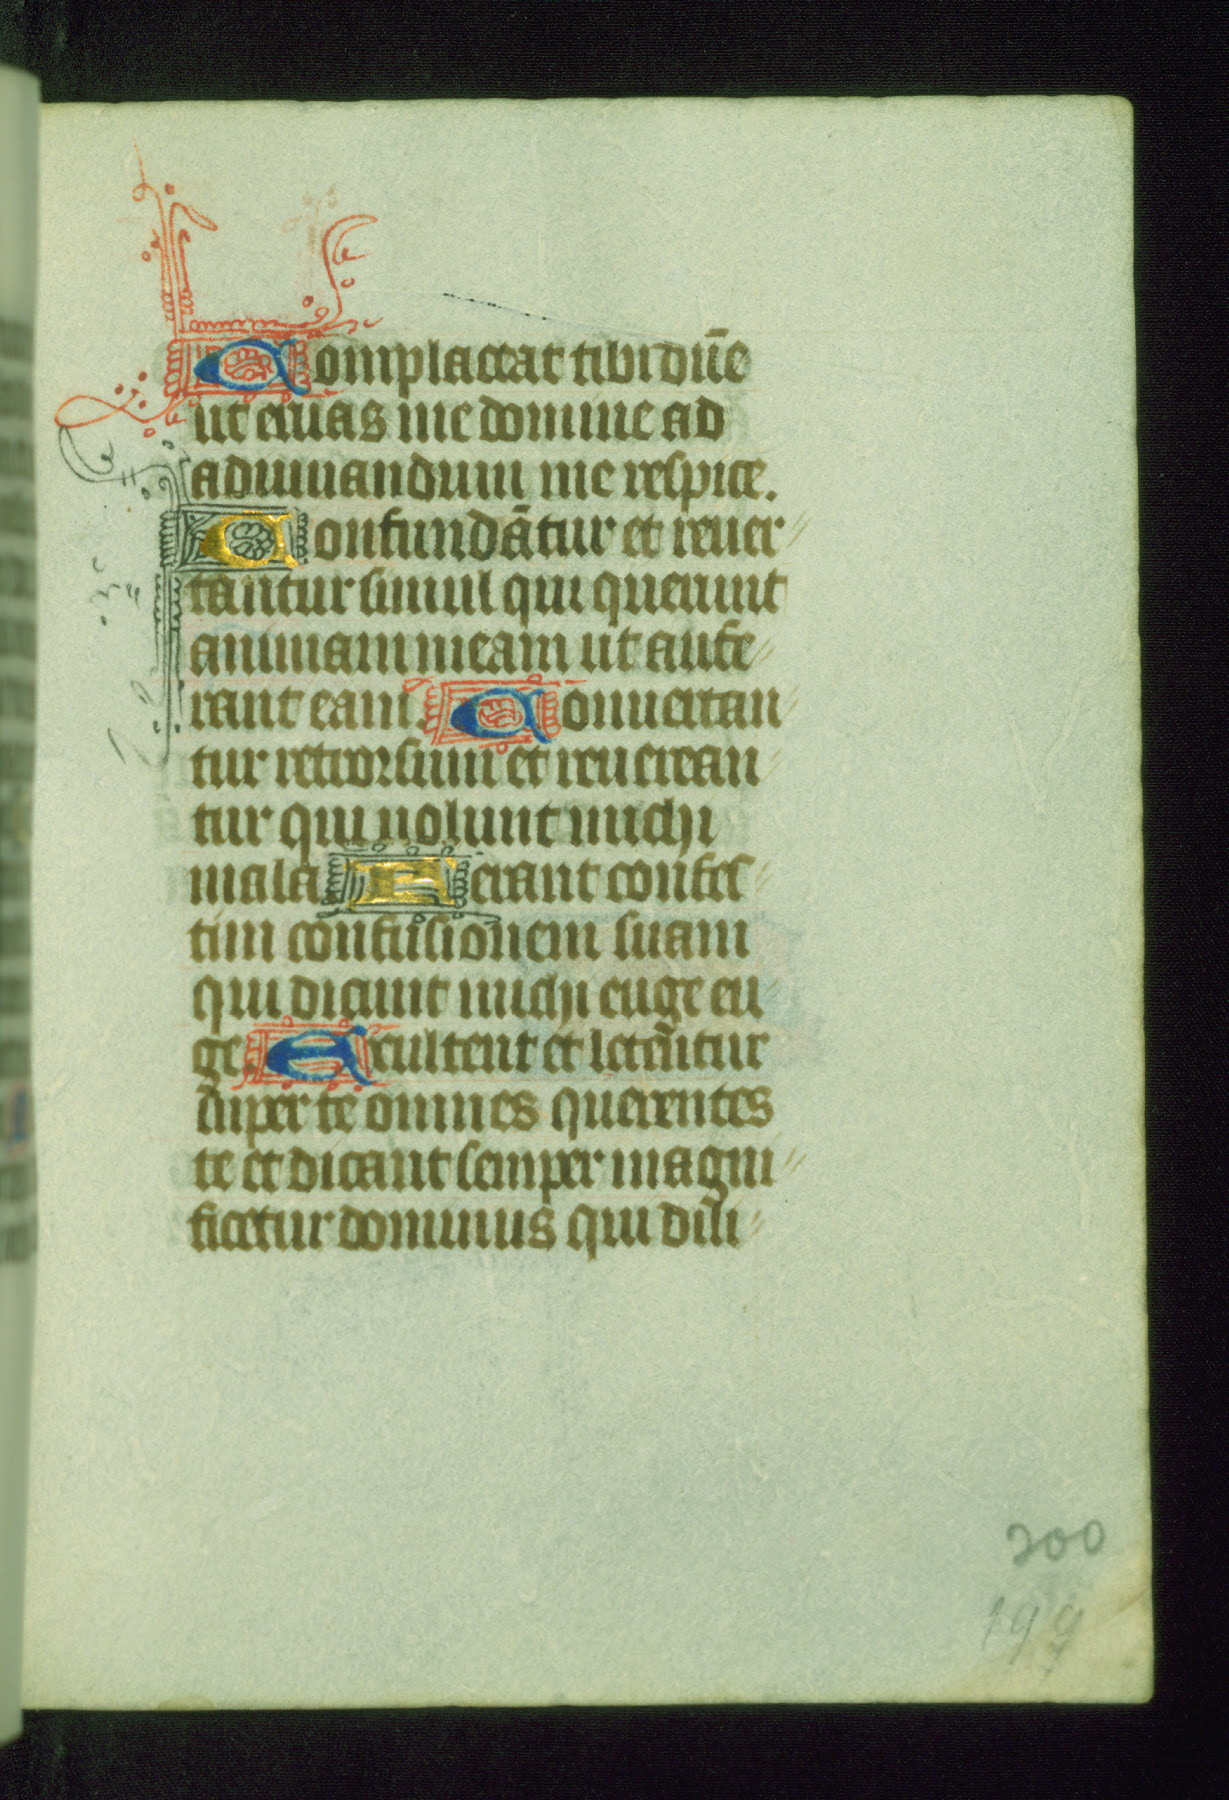 Complaceat tibi dñe
ut eruas me domine ad
adiuuandum me respice.
Confundãtur et reuer
tantur simul qui querunt
animam meam ut aufe
rant eam. Conuertan
tur retrorsum et reuerean
tur qui uolunt michi
mala Ferant confes
tim confusionem suam
qui dicunt michi euge eu
ge. Exultent et letẽtur
super te omnes querentes
te et dicant semper magni
ficetur dominus qui dili
200
199